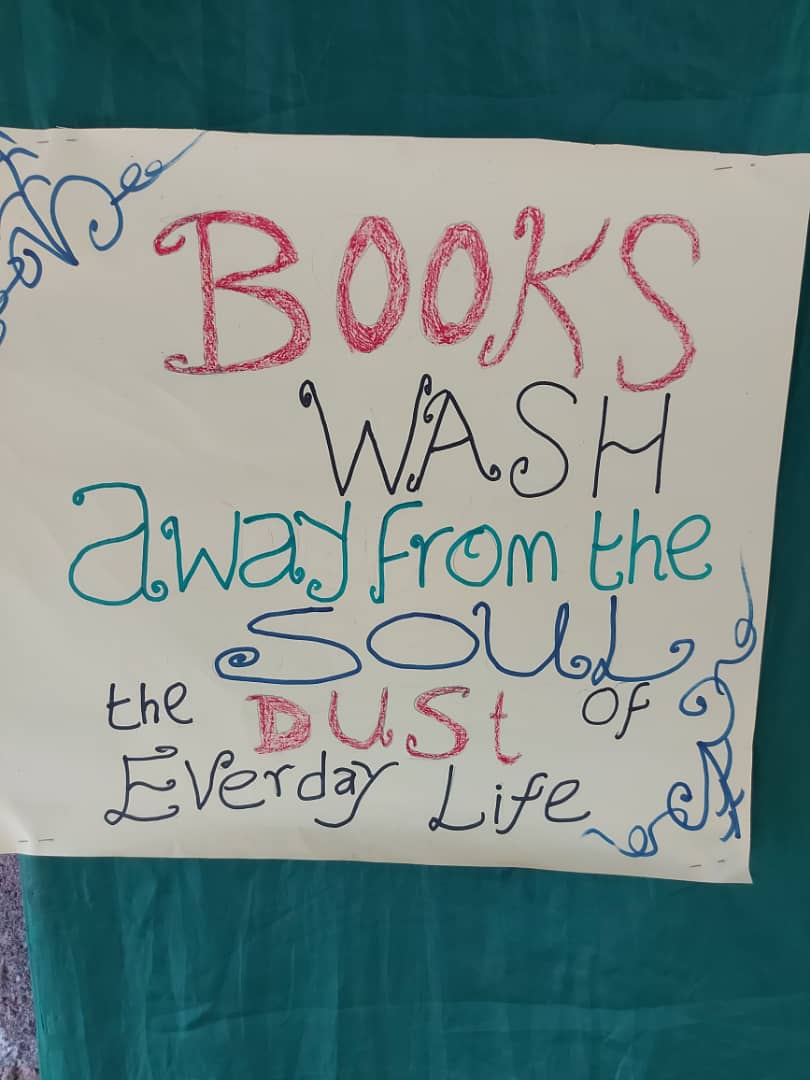 BOOKS
WASH
away from the
SOUL
the DUSt of
Everday Life